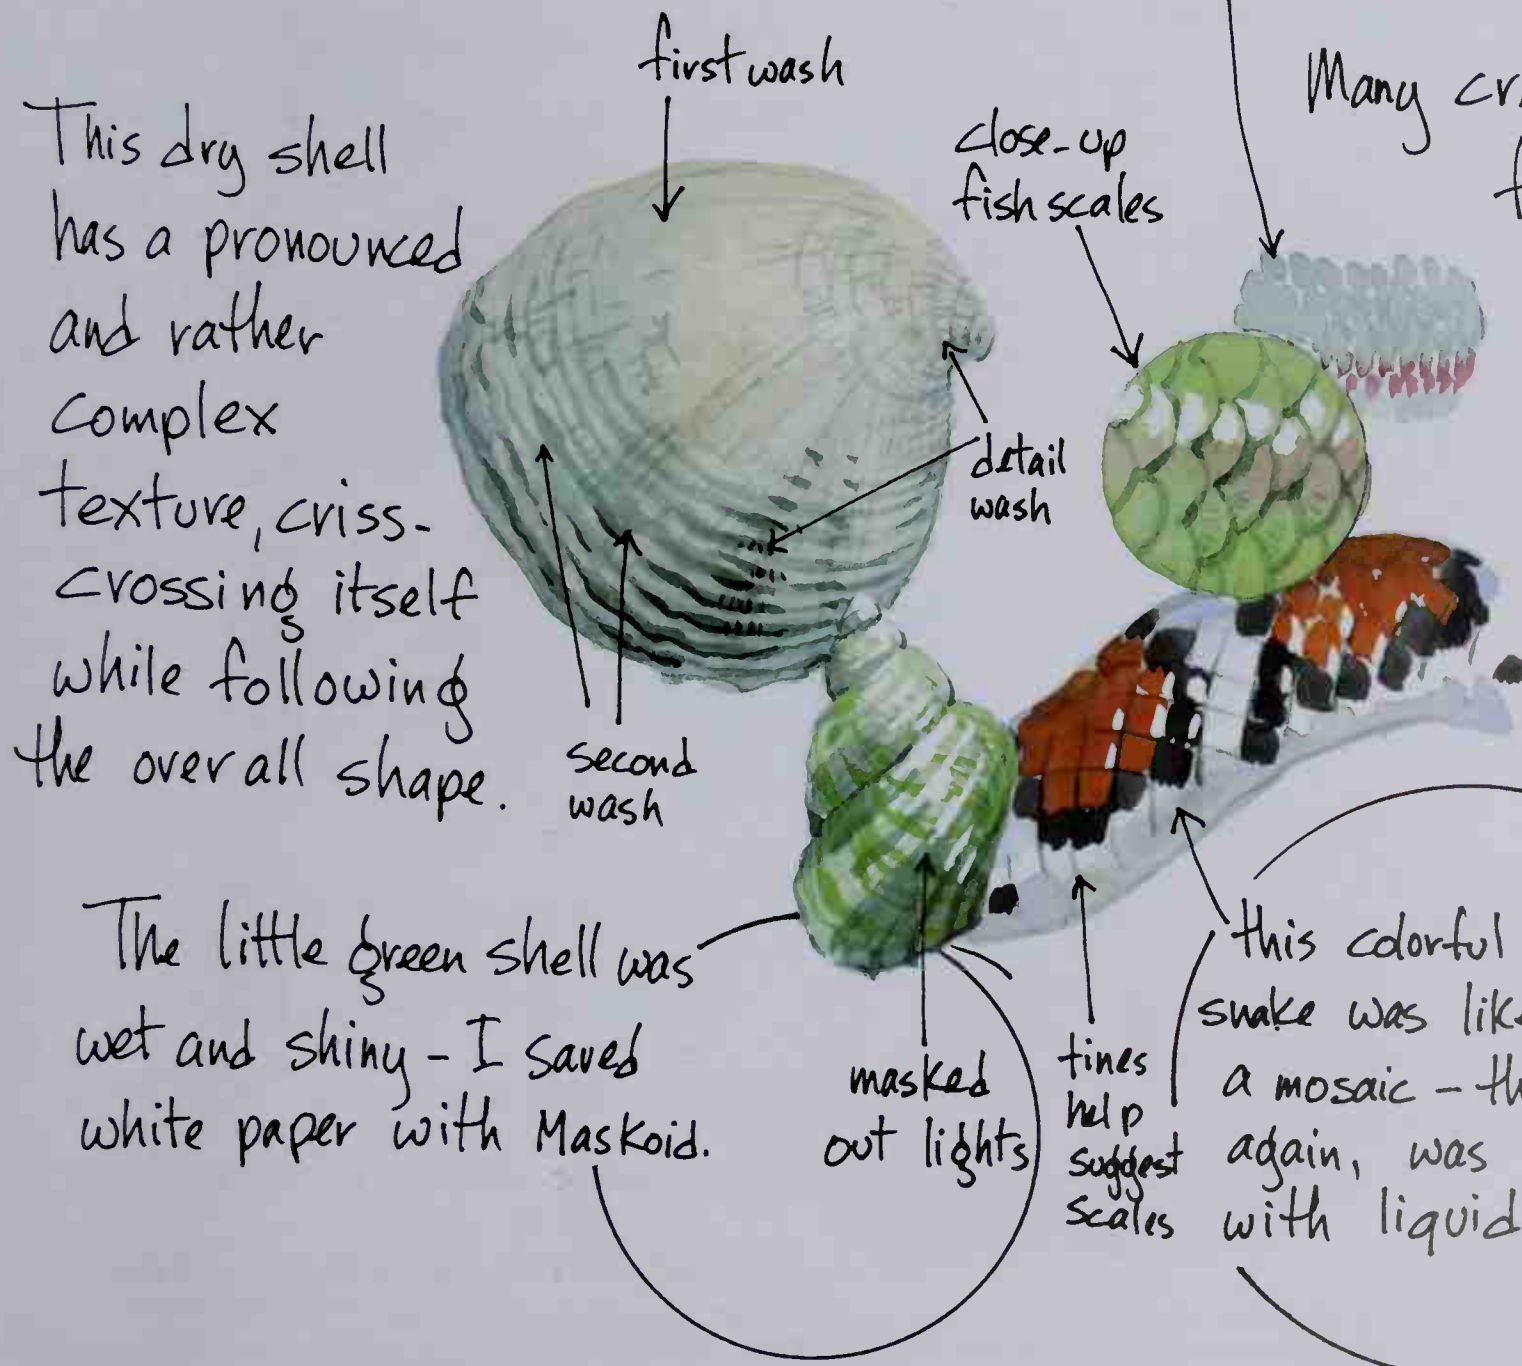 first wash
This dry shell
has a pronounced
and rather
complex
texture, criss-
crossing itself
while following
the overall shape.
close-up
fish scales
Many
detail
wash
second
wash
The little green shell was
wet and shiny - I saved
white paper with Maskoid.
masked
out lights
tines
help
suggest
scales
this colorful
snake was
a mosaic -
again, was
with liquid